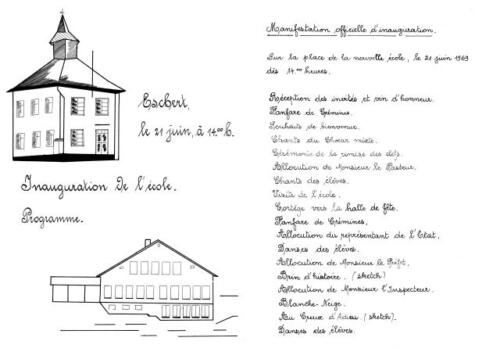 Eschert,
le 21 juin, à 14.00 h.
Inauguration de l'école.
Programme.
Manifestation officielle d'inauguration.
Sur la place de la nouvelle école, le 21 juin 1969
dès 14.00 heures.
Réception des invités et vin d'honneur.
Fanfare de Crémines.
Souhaits de bienvenue.
Chants du Choeur mixte.
Cérémonie de la remise des clefs.
Allocution de Monsieur le Pasteur.
Chants des élèves.
Visite de l'école.
Cortège vers la halle de fête.
Fanfare de Crémines.
Allocution du représentant de l'Etat.
Danses des élèves.
Allocution de Monsieur le Préfet.
Brin d'histoire. (sketch)
Allocution de Monsieur l'Inspecteur.
Blanche-Neige.
Au Creux d'Adieu (sketch).
Danses des élèves.